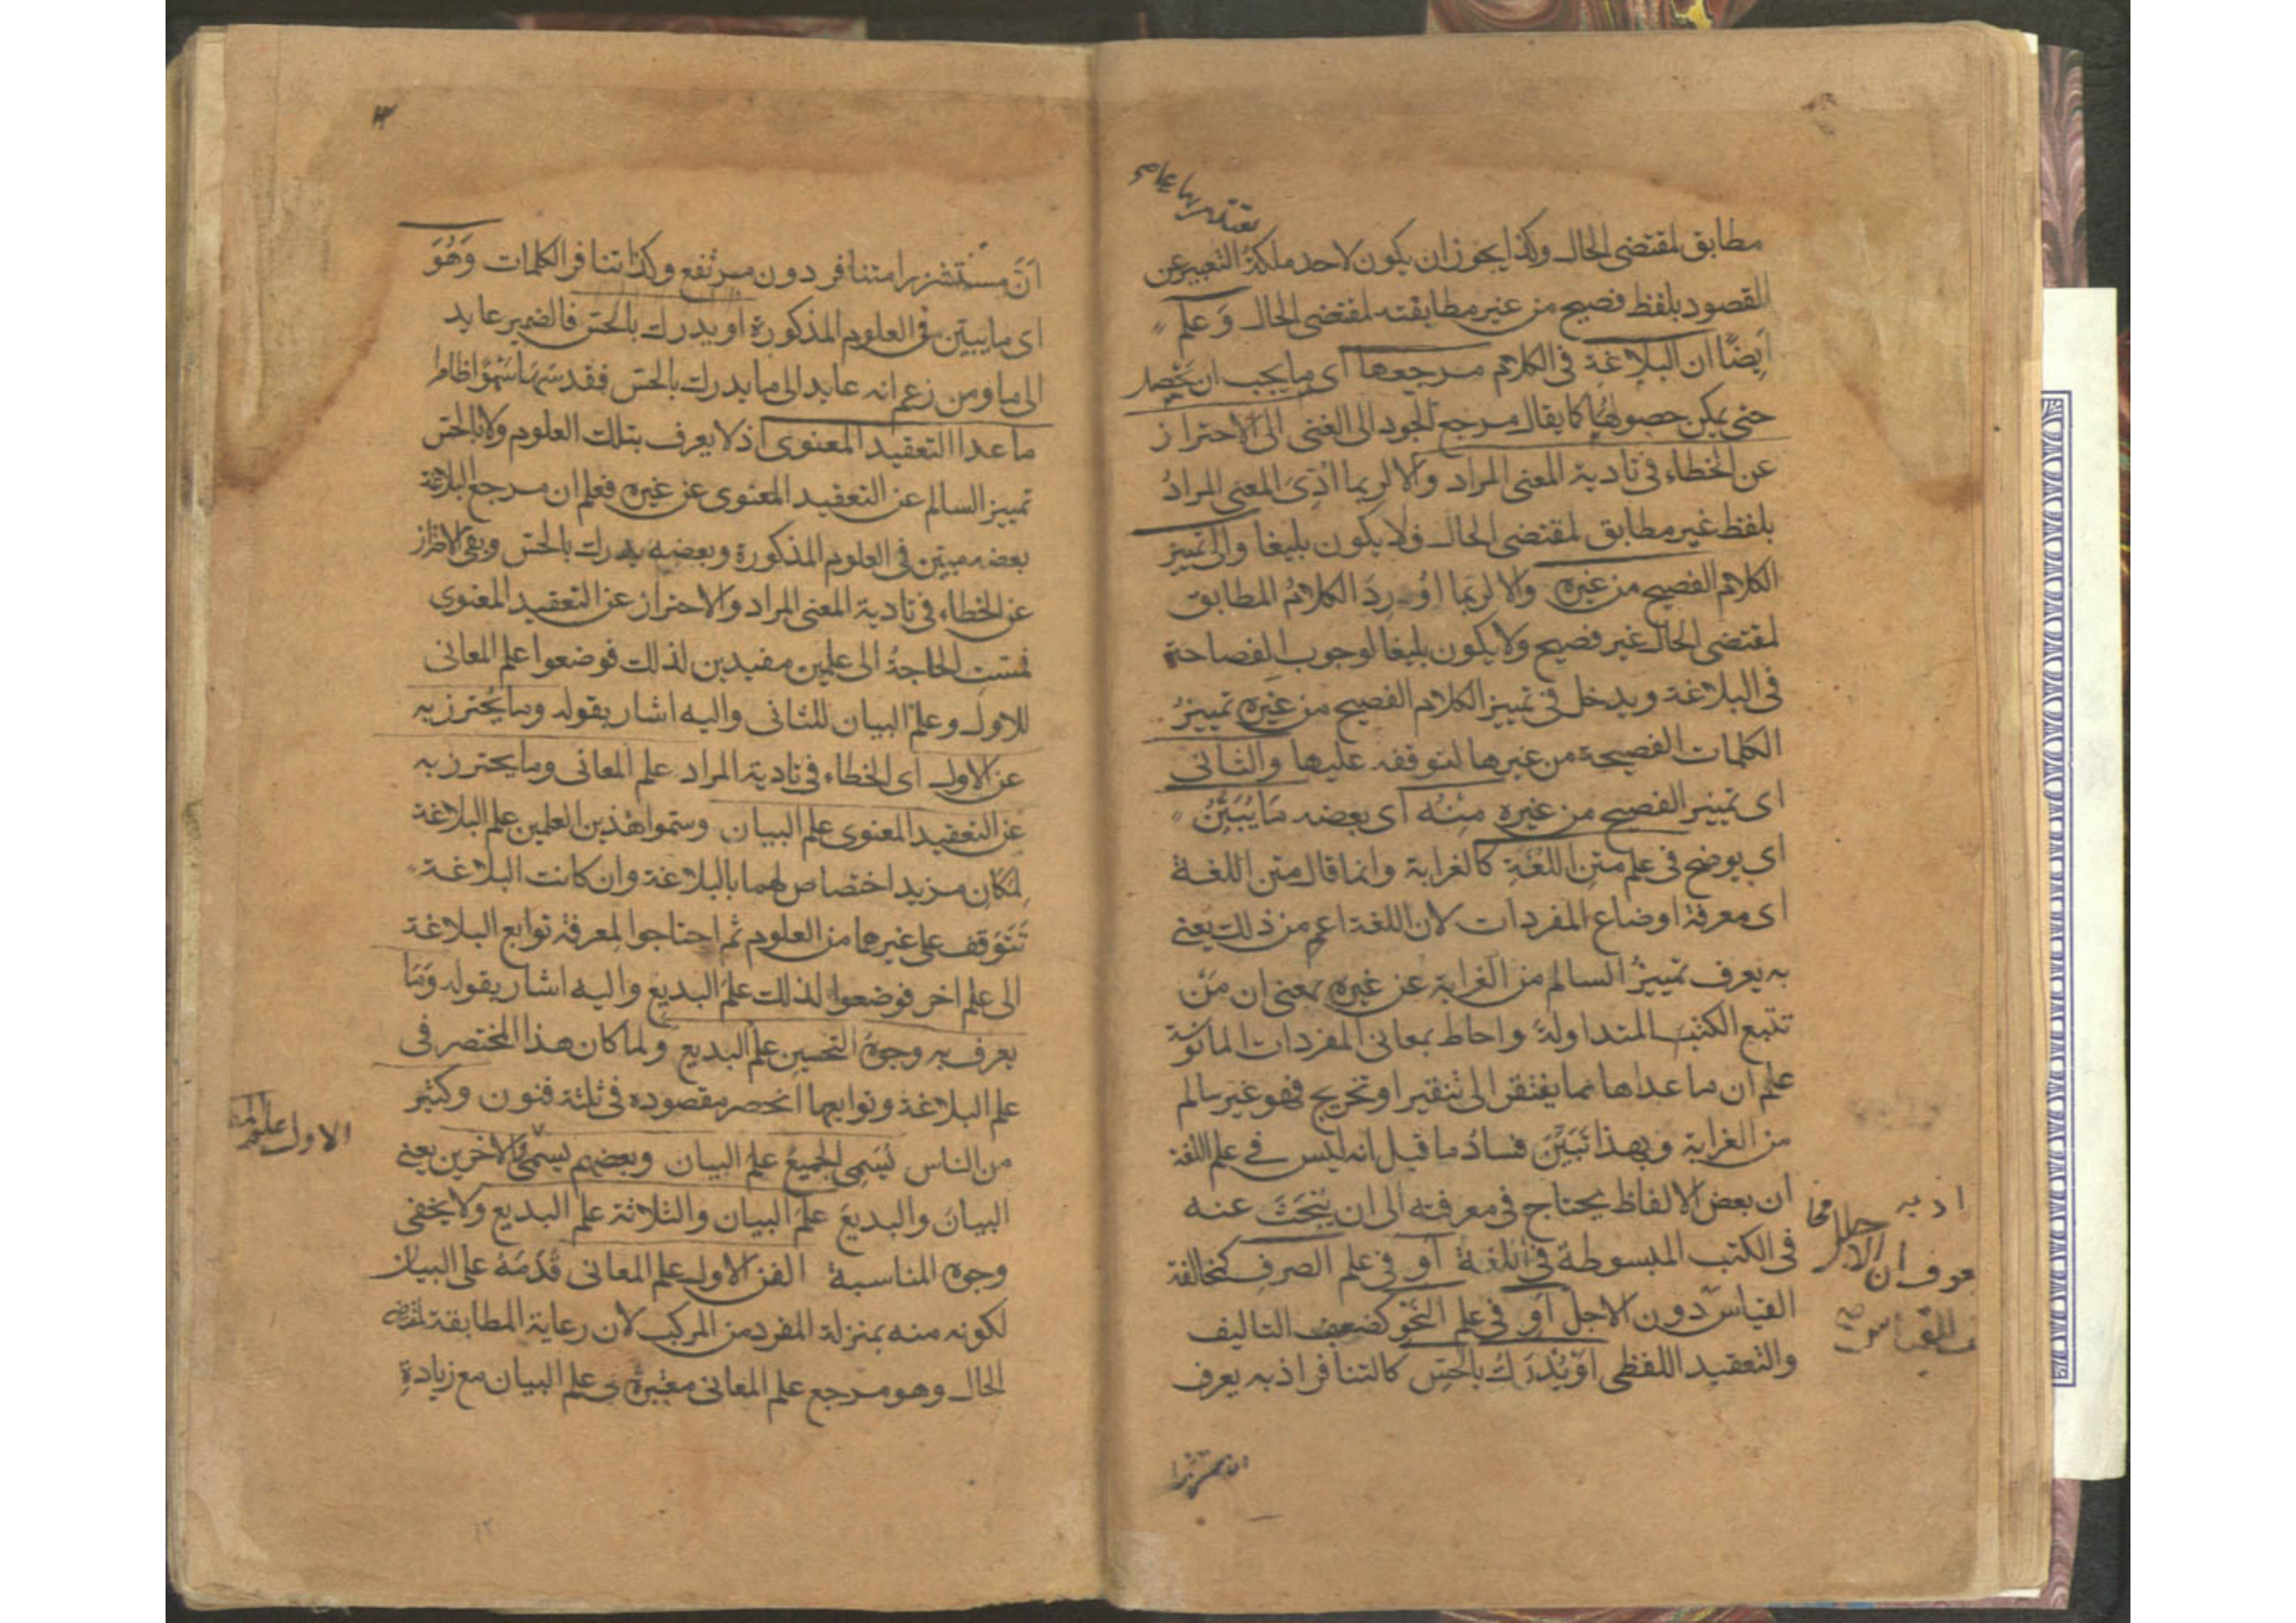 يقتدر بها على
مطابق لمقتضى الحال وكذا يجوز ان يكون لاحد ملكة التعبير عن
المقصود بلفظ فصيح من غير مطابقته لمقتضى الحال وَعلم
اَيضًا ان البلاغة فى الكلام مرجعها اى ما يجب ان يحصل
حتى يمكن حصولها كما يقال مرجع الجود الى الغنى الى الاحتراز
عن الخطاء فى تادية المعنى المراد والا لربما اُدّىَ المعنى المرادُ
بلفظ غير مطابق لمقتضى الحال فلا يكون بليغا والى تمييز
الكلام الفصيح من غيره والا لربما اُورِدَ الكلامُ المطابق
لمقتضى الحال غير فصيح ولا يكون بليغا لوجوب الفصاحة
فى البلاغة ويدخل فى تمييز الكلام الفصيح من غيره تمييزُ
الكلمات الفصيحة من غيرها لتوقفه عليها والثانى
اى تمييز الفصيح من غيره مِنْهُ اى بعضه مَا يُبَيَّنُ
اى يوضح فى علم متنِ اللغَةِ كالغرابة وانما قال متن اللغة
اى معرفة اوضاع المفردات لان اللغة اعم من ذلك يعنى
به يعرف تمييزُ السالم من الغرابة عن غيره بمعنى ان مَن
تتبع الكتب المتداولة واحاط بمعانى المفردات المانوسة
علم ان ما عداها مما يفتقر الى تنقير او تخريج فهو غير سالم
من الغرابة وبهذا تَبَيّنَ فسادُ ما قيل انه ليس فى علم اللغة
ان بعض الالفاظ يحتاج فى معرفته الى ان يُبحَثَ عنه
فى الكتب المبسوطة فى اللغة اَو فى علم الصرفِ كمخالفة
القياس دون الاجل اَو فى علم النّحو كضعف التاليف
والتعقيد اللفظى اوْ يُدْرَكُ بالحِسّ كالتنافر اذ به يعرف
اذ به
ان مستشزرا
اَنّ مستشزرا متنافر دون مرتفع وكذا تنافر الكلمات وَهُوَ
اى ما يبيّن فى العلوم المذكورة او يدرك بالحسّ فالضمير عايد
الى ما ومن زعم انه عايد الى ما يدرك بالحسّ فقد سَهَا سَهْوًا ظاهرا
ما عدا التعقيد المعنوى اذ لا يعرف بتلك العلوم ولا بالحسّ
تمييز السالم عن التعقيد المعنوى عن غيره فعلم ان مرجع البلاغة
بعضه مبيّن فى العلوم المذكورة وبعضه يدرك بالحسّ وبقى الاحتراز
عن الخطاء فى تادية المعنى المراد والاحتراز عن التعقيد المعنوى
فمسّت الحاجةُ الى علمين مفيدين لذلك فوضعوا علم المعانى
للاول وعلم البيان للثانى واليه اشار بقوله وما يُحترز به
عن الاول اى الخطاء فى تادية المراد علم المعانى وما يحترز به
عن التعقيد المعنوى علم البيان وسمّوا هذين العلمين علم البلاغة
لِمَكانِ مزيد اختصاص لهما بالبلاغة وان كانت البلاغة
تَتَوَقف على غيرهما من العلوم ثم احتاجوا لمعرفة توابع البلاغة
الى علم اخر فوضعوا لذلك علمَ البديع واليه اشار بقوله وَمَا
يعرف به وجوهُ التحسين علم البديع ولما كان هذا المختصر فى
علم البلاغة وتوابعها انحصر مقصوده فى ثلثة فنون وكثير
من الناس يُسَمى الجميعَ علمَ البيان وبعضهم يسمى الاخرين يعنى
البيانَ والبديعَ علمَ البيان والثلاثة علم البديع ولا يخفى
وجوه المناسبة الفن الاول علم المعانى قَدّمَهُ على البيان
لكونه منه بمنزلة المفرد من المركب لان رعاية المطابقة لمقتضى
الحال وهو مرجع علم المعانى معتبرة فى علم البيان مع زيادةِ
الاول علم
١٢